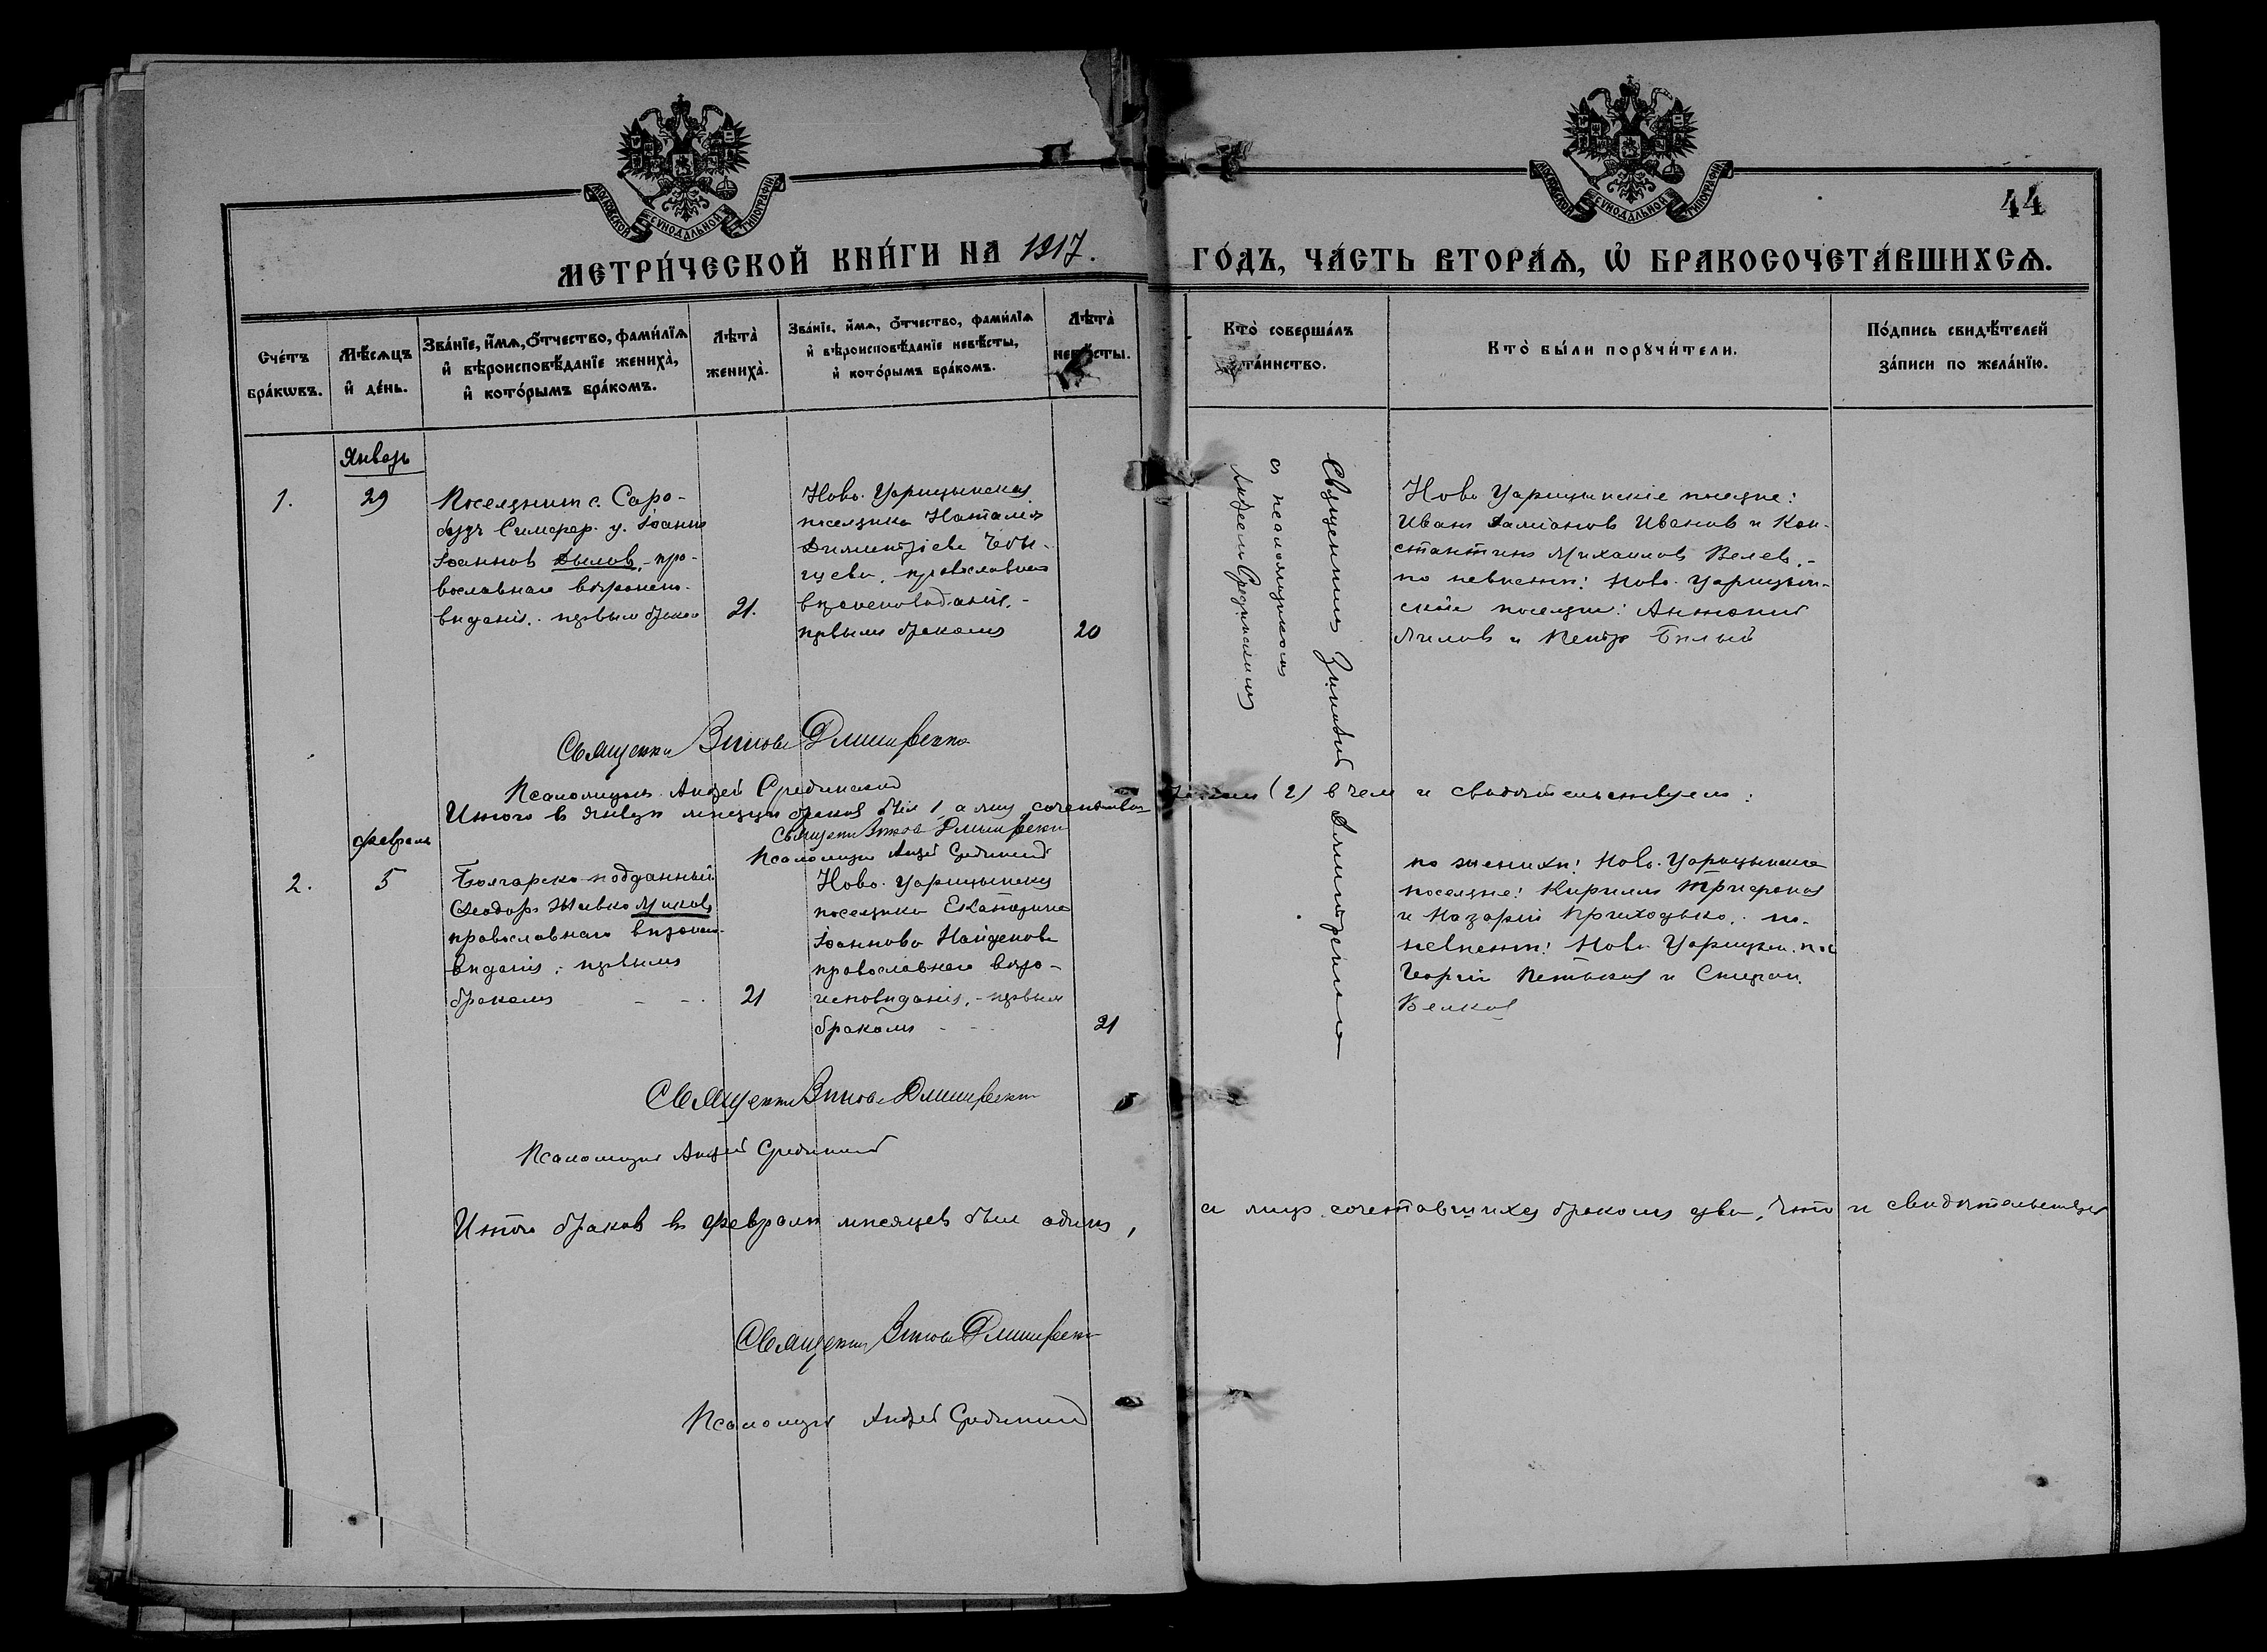 МОСКОВСКОЙ СѴНОДАЛЬНОЙ ТИПОГРАФІИ
МОСКОВСКОЙ СѴНОДАЛЬНОЙ ТИПОГРАФІИ
44
МЕТРИ́ЧЕСКОЙ КНИ́ГИ НА 1917. ГО́ДЪ, ЧА́СТЬ ВТОРА́Ѧ, Ѡ҆ БРАКОСОЧЕТА́ВШИХСѦ.
Сче́тъ
бра́кѡвъ.
Мѣ́сѧцъ
и҆ де́нь.
Зва́нїе, и҆́мѧ, о҆́тчество, фами́лїѧ
и҆ вѣроисповѣ́данїе жениха̀,
и҆ кото́рымъ бра́комъ.
Лѣта̀
жениха̀.
Зва́нїе, и҆́мѧ, о҆́тчество, фами́лїѧ
и҆ вѣроисповѣ́данїе невѣ́сты,
и҆ кото́рымъ бра́комъ.
Лѣта̀
невѣ́сты.
Кто̀ соверша́лъ
та́инство.
Кто̀ бы́ли порꙋчи́тели.
По́дпись свидѣ́телей
за́писи по жела́нїю.
Январь
1.
29
Поселянинъ с. Саро-
бузъ Симфер. у. Іоаннъ
Іоанновъ Дыловъ, - пра-
вославнаго вѣроиспо-
вѣданія. первымъ бракомъ
21.
Ново-Царицынская
поселянка Наталія
Димитріева
православнаго
вѣроисповѣданія, -
первымъ бракомъ
20
Священникъ Зиновій Димитренко
съ псаломщикомъ
Андреемъ Срединскимъ
Ново Царицынскіе поселяне:
Иванъ Даміановъ Ивановъ и Кон-
стантинъ Михаиловъ Велевъ. -
по невѣстѣ: Ново-Царицын-
скіе поселяне: Антоній
Миловъ и Петръ Бѣлый
Священникъ Зиновій Димитренко
Псаломщикъ Андрей Срединскій
Итого въ январѣ мѣсяцѣ браковъ былъ 1, а лицъ сочетавш. (2) в чемъ и свидѣтельствуемъ:
Священникъ Зиновій Димитренко
Псаломщикъ Андрей Срединскій
Февраль
2.
5
Болгарско-подданный
Ѳеодоръ Живко Миловъ,
православнаго вѣроиспо-
вѣданія; первымъ
бракомъ - -
21
Ново-Царицынская
поселянка Екатерина
Іоаннова Найденова
православнаго вѣро-
исповѣданія, - первымъ
бракомъ - -
21
по женихѣ: Ново-Царицынскіе
поселяне: Кириллъ Трифоновъ
и Назарій Приходько, по-
невѣстѣ: Ново-Царицын. пос
Георгій Петковъ и Стефан.
Велковъ
Священникъ Зиновій Димитренко
Псаломщикъ Андрей Срединскій
Итого браковъ въ Февралѣ мѣсяцѣ былъ одинъ, а лицъ сочетавшихся бракомъ два, что и свидѣтельствуемъ
Священникъ Зиновій Димитренко
Псаломщикъ Андрей Срединскій